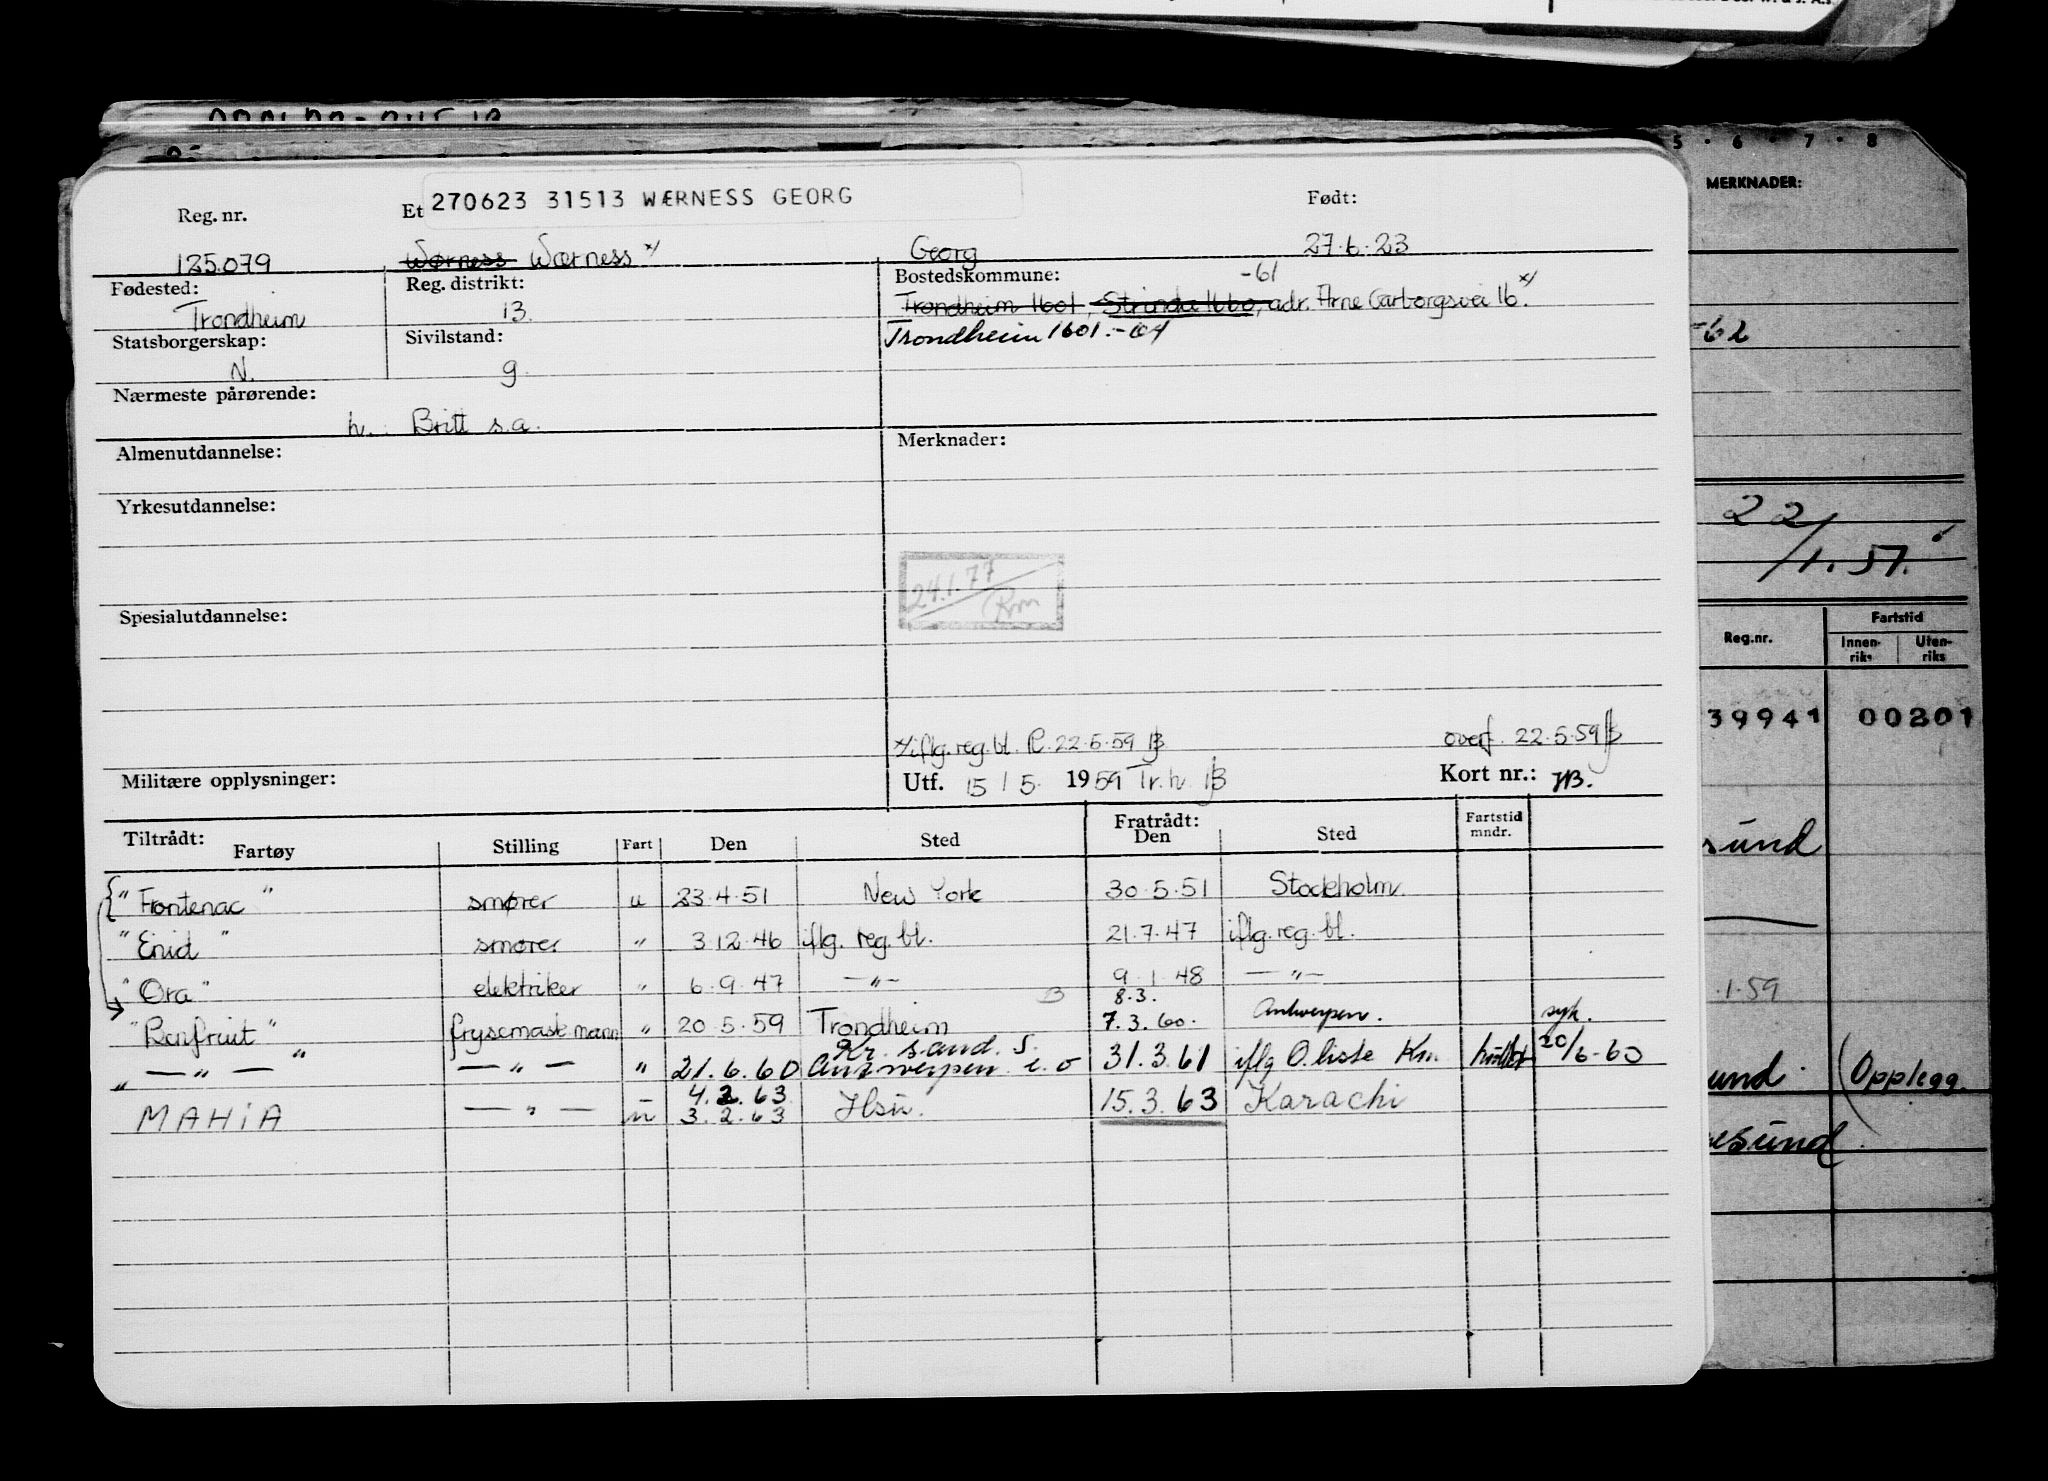 Reg. nr. Et 270623 31513 WÆRNESS GEORG Født:
125.079 Wørness Wærness x/ Georg 27.6.23
Fødested: Reg. distrikt: Bostedskommune: -61
Trondheim 13. Trondheim 1601, Strinda 1660, adr. Arne Garborgsvei 16. x/
Statsborgerskap: Sivilstand: Trondheim 1601.-64
N. g.
Nærmeste pårørende:
h. Britt s.a.
Almenutdannelse: Merknader:
Yrkesutdannelse:
24.1.77
Spesialutdannelse:
x/ iflg. reg. bl. R. 22.5.59 overf. 22.5.59
Militære opplysninger: Utf. 15 / 5. 1959 Tr.h. Kort nr.:
Tiltrådt: Fratrådt:
Fartøy Stilling Fart Den Sted Den Sted Fartstid mndr.
"Frontenac" smører u 23.4.51 New York 30.5.51 Stockholm.
"Enid" smører " 3.12.46 iflg. reg. bl. 21.7.47 iflg. reg. bl.
"Ora" elektriker " 6.9.47 —"— 9.1.48 —"—
8.3.
"Benfruit" frysemaskmann " 20.5.59 Trondheim 7.3.60. Antwerpen. syk.
Kr. sand. S.
" — " — " — " — " 21.6.60 Antwerpen e.o 31.3.61 iflg O.liste Kr. 20/6-60
4.2.63
MAHIA — " — u 3.2.63 15.3.63 Karachi
5 . 6 . 7 . 8
MERKNADER:
-62
22/1.57.
Reg.nr. Fartstid
Innen-riks Uten-riks
39941 00201
sund
.1.59
und. (Opplegg.
esund.